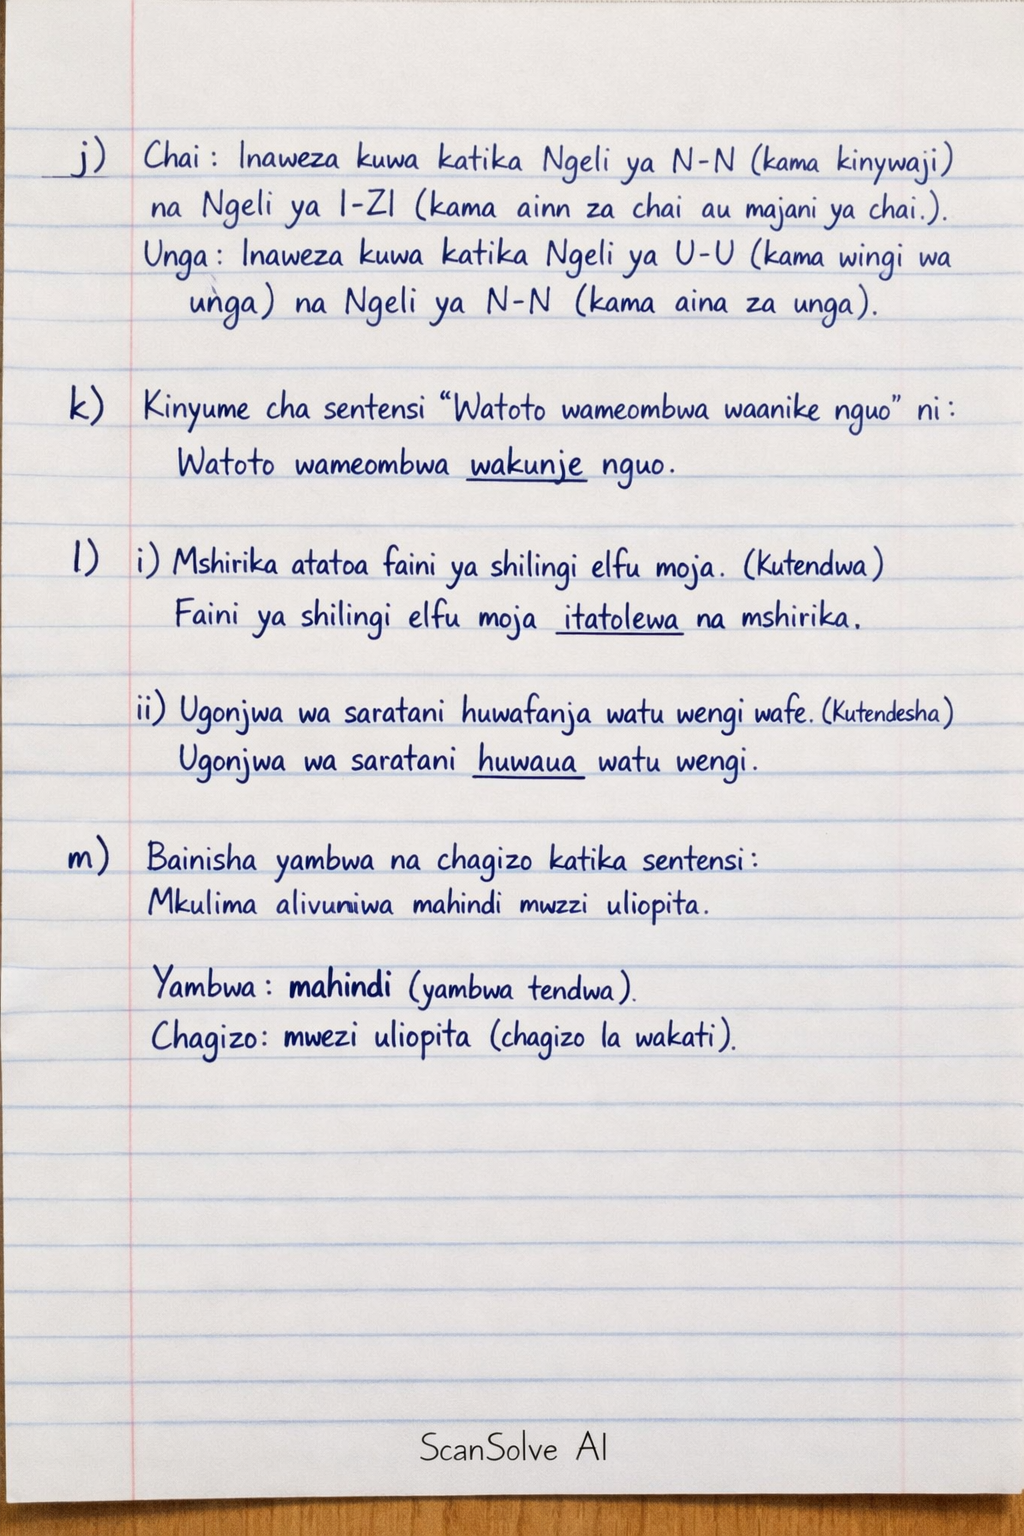 j) Chai : Inaweza kuwa katika Ngeli ya N-N (kama kinywaji)
na Ngeli ya I-ZI (kama ainn za chai au majani ya chai.).
Unga : Inaweza kuwa katika Ngeli ya U-U (kama wingi wa
unga) na Ngeli ya N-N (kama aina za unga).
k) Kinyume cha sentensi "Watoto wameombwa waanike nguo" ni :
Watoto wameombwa wakunje nguo.
l) i) Mshirika atatoa faini ya shilingi elfu moja. (Kutendwa)
Faini ya shilingi elfu moja itatolewa na mshirika.
ii) Ugonjwa wa saratani huwafanja watu wengi wafe. (Kutendesha)
Ugonjwa wa saratani huwaua watu wengi.
m) Bainisha yambwa na chagizo katika sentensi :
Mkulima alivuniwa mahindi mwzzi uliopita.
Yambwa : mahindi (yambwa tendwa).
Chagizo: mwezi uliopita (chagizo la wakati).
ScanSolve AI